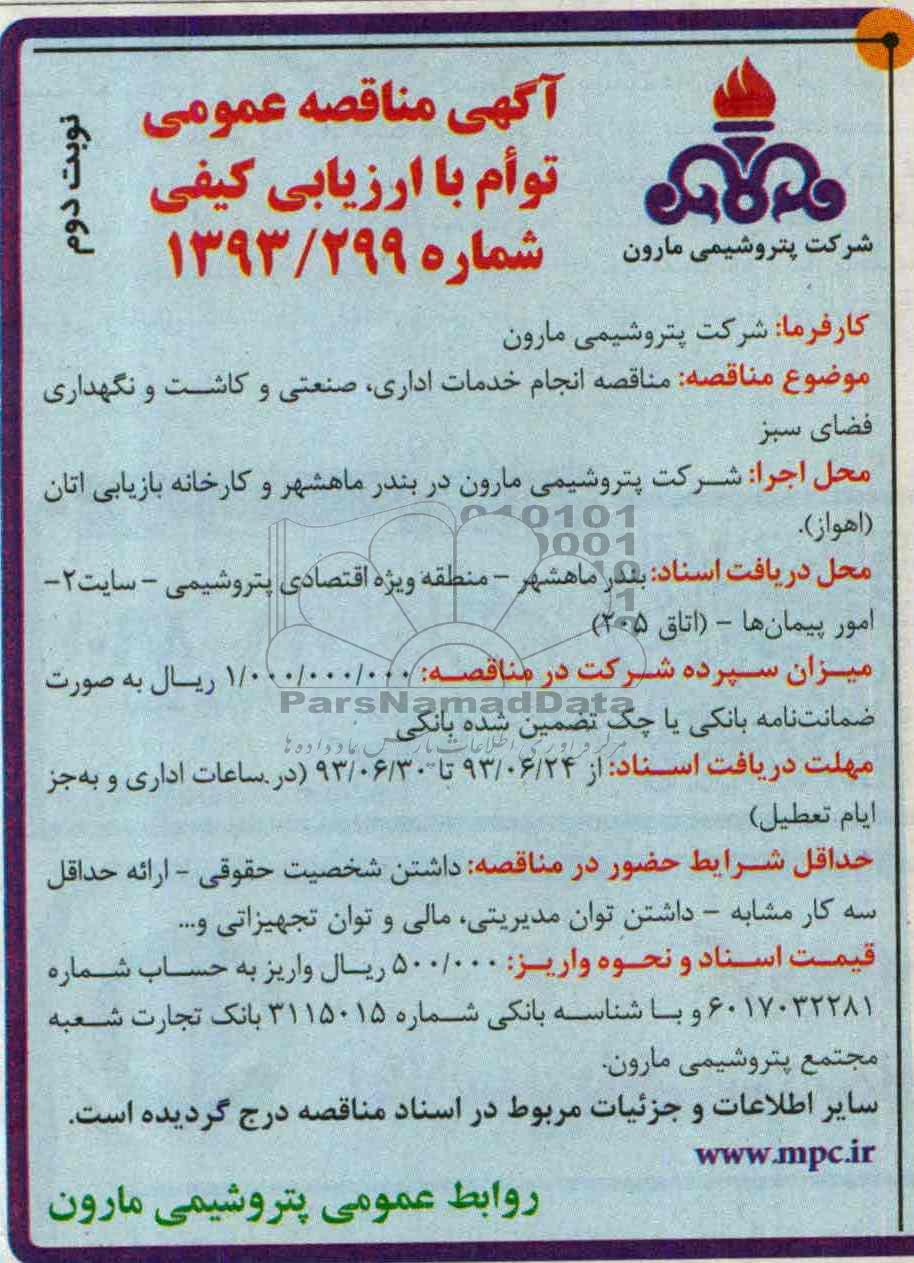 آگهی مناقصه عمومی
توأم با ارزیابی کیفی
شماره ۱۳۹۳/۲۹۹
نوبت دوم
شرکت پتروشیمی مارون
کارفرما: شرکت پتروشیمی مارون
موضوع مناقصه: مناقصه انجام خدمات اداری، صنعتی و کاشت و نگهداری
فضای سبز
محل اجرا: شرکت پتروشیمی مارون در بندر ماهشهر و کارخانه بازیابی اتان
(اهواز).
محل دریافت اسناد: بندر ماهشهر - منطقه ویژه اقتصادی پتروشیمی - سایت۲-
امور پیمان‌ها - (اتاق ۲۰۵)
میزان سپرده شرکت در مناقصه: ۱/۰۰۰/۰۰۰/۰۰۰ ریال به صورت
ضمانت‌نامه بانکی یا چک تضمین شده بانکی
مهلت دریافت اسناد: از ۹۳/۰۶/۲۴ تا ۹۳/۰۶/۳۰ (در ساعات اداری و به‌جز
ایام تعطیل)
حداقل شرایط حضور در مناقصه: داشتن شخصیت حقوقی - ارائه حداقل
سه کار مشابه - داشتن توان مدیریتی، مالی و توان تجهیزاتی و...
قیمت اسناد و نحوه واریز: ۵۰۰/۰۰۰ ریال واریز به حساب شماره
۶۰۱۷۰۳۲۲۸۱ و با شناسه بانکی شماره ۳۱۱۵۰۱۵ بانک تجارت شعبه
مجتمع پتروشیمی مارون.
سایر اطلاعات و جزئیات مربوط در اسناد مناقصه درج گردیده است.
www.mpc.ir
روابط عمومی پتروشیمی مارون
ParsNamadData